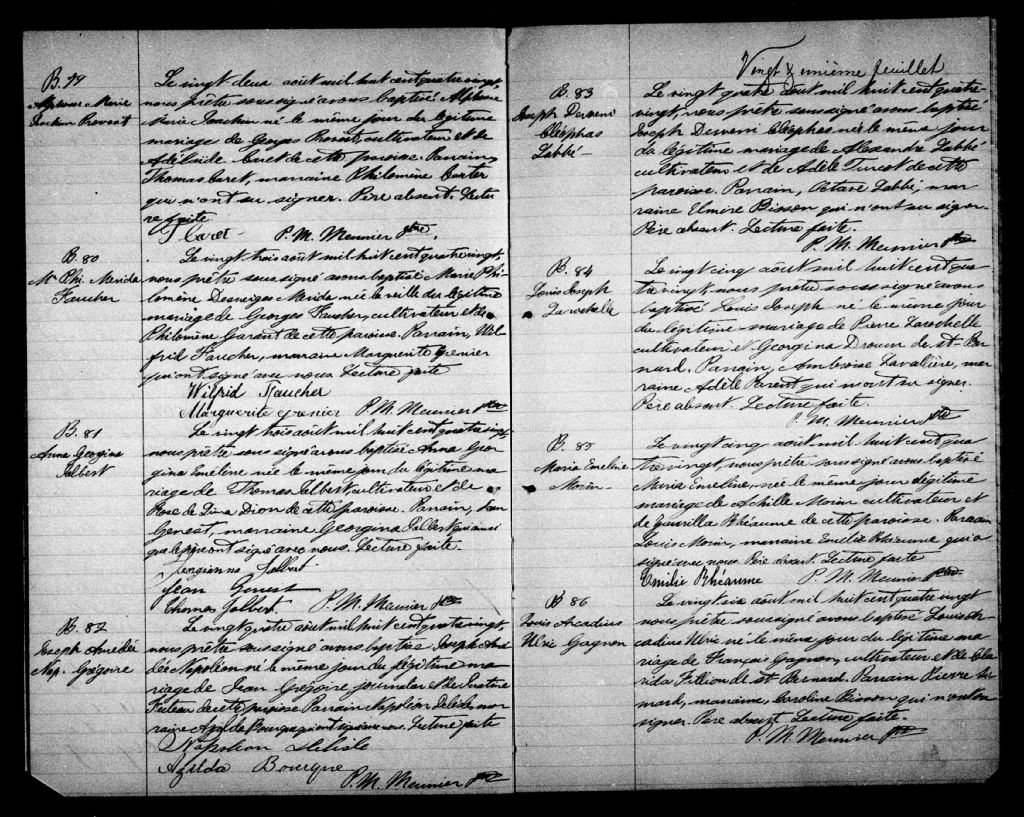 B. 79
Alphonse Marie
Joachim Provost
Le vingt-deux août mil huit cent quatre vingt,
nous prêtre soussigné avons baptisé Alphonse
Marie Joachim né le même jour du légitime
mariage de Georges Provost, cultivateur et de
Adélaïde de cette paroisse. Parrain,
Thomas Caret, marraine Philomène Carter
qui n'ont su signer. Père absent. Lectu
re faite
P. M. Meunier Ptre.
B. 80
Me Phi. Merida
Faucher
Le vingt trois août mil huit cent quatre vingt,
nous prêtre soussigné avons baptisé Marie Phi
lomène Desneiges Merida née la veille du légitime
mariage de Georges Faucher, cultivateur et de
Philomène Garant de cette paroisse. Parrain, Wil
frid Faucher, marraine Marguerite Grenier
qui ont signé avec nous. Lecture faite
Wilfrid Faucher
Marguerite Grenier P. M. Meunier Ptre
B. 81
Anna Georgina
Jalbert
Le vingt trois août mil huit cent quatre vingt,
nous prêtre soussigné avons baptisé Anna Geor
gina Emeline née le même jour du légitime ma
riage de Thomas Jalbert, cultivateur et de
Rose de Lima Dion de cette paroisse. Parrain, Jean
Genest, marraine Georgina Jalbert qui ainsi
que le père ont signé avec nous. Lecture faite.
Georgianna Jalbert
Jean Genest
Thomas Jalbert P. M. Meunier Ptre
B. 82
Joseph Amédée
Nap. Grégoire
Le vingt quatre août mil huit cent quatre vingt,
nous prêtre soussigné avons baptisé Joseph Amé
dée Napoléon né le même jour du légitime ma
riage de Jean Grégoire journalier et de
de cette paroisse Parrain Napoléon Delisle, mar
raine Azilda Bourque qui ont signé avec nous. Lecture faite
Napoléon Delisle
Azilda Bourque
P. M. Meunier Ptre
Vingt & unième feuillet
B. 83
Joseph
Cléophas
Labbé
Le vingt quatre août mil huit cent quatre-
vingt, nous prêtre soussigné avons baptisé
Joseph Cléophas né le même jour
du légitime mariage de Alexandre Labbé
cultivateur et de Adèle Turcot de cette
paroisse. Parrain, Octave Labbé, mar
raine Elmire Bisson qui n'ont su signer.
Père absent. Lecture faite.
P. M. Meunier Ptre
B. 84
Louis Joseph
Larochelle
Le vingt cinq août mil huit cent qua
tre vingt, nous prêtre soussigné avons
baptisé Louis Joseph né le même jour
du légitime mariage de Pierre Larochelle
cultivateur et Georgina Drouin de St. Ber
nard. Parrain, Ambroise Lavallière, mar
raine Adèle Parent qui n'ont su signer.
Père absent. Lecture faite.
P. M. Meunier Ptre
B. 85
Maria Emeline
Morin
Le vingt cinq août mil huit cent qua
tre vingt, nous prêtre soussigné avons baptisé
Maria Emeline, née le même jour légitime
mariage de Achille Morin cultivateur et
de Rhéaume de cette paroisse. Parrain
Louis Morin, marraine Emilie Rhéaume qui a
signé avec nous. Père absent. Lecture faite
Emilie Rhéaume P. M. Meunier Ptre
B. 86
Louis Arcadius
Ulric Gagnon
Le vingt six août mil huit cent quatre vingt
nous prêtre soussigné avons baptisé Louis Ar
cadius Ulric né le même jour du légitime ma
riage de François Gagnon, cultivateur et de Clo
rida Fillion de St. Bernard. Parrain Pierre Si
mard, marraine, Caroline Bisson qui n'ont su
signer. Père absent. Lecture faite.
P. M. Meunier Ptre